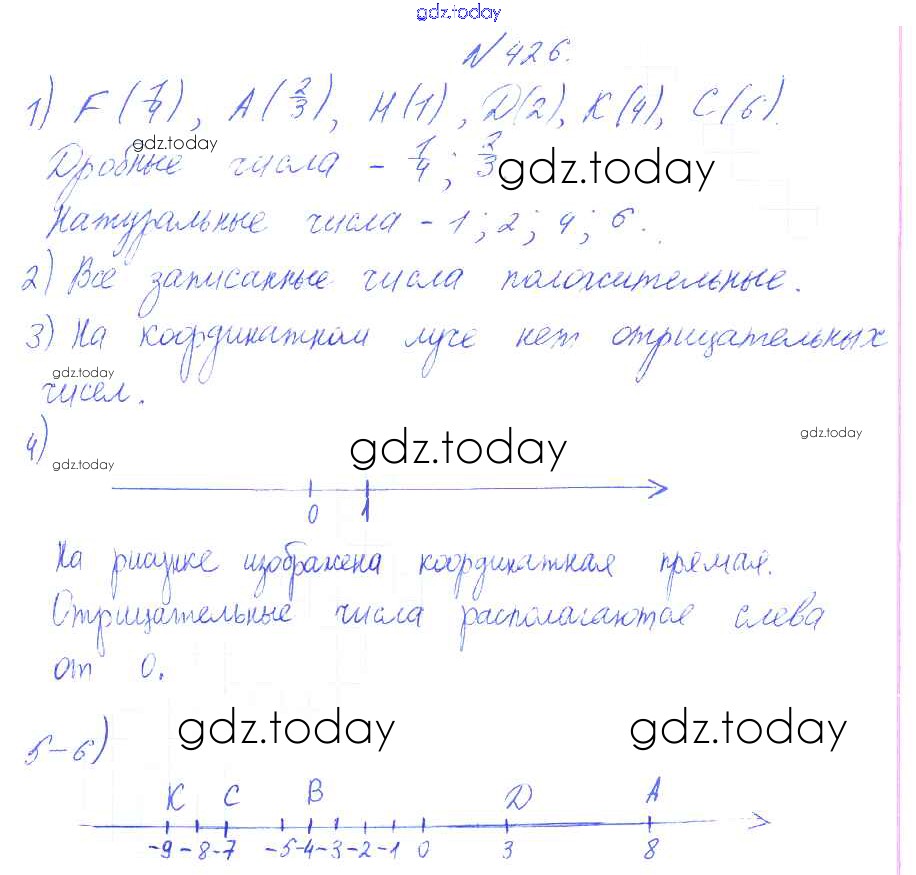 gdz.today
№426.
1) F(1/4), A(2/3), M(1), D(2), K(4), C(6).
gdz.today
Дробные числа - 1/4; 2/3
gdz.today
Натуральные числа - 1; 2; 4; 6.
2) Все записанные числа положительные.
3) На координатном луче нет отрицательных
gdz.today
чисел.
4)
gdz.today
gdz.today
gdz.today
0 1
На рисунке изображена координатная прямая.
Отрицательные числа располагаются слева
от 0.
gdz.today
gdz.today
5-6)
K C B D A
-9 -8 -7 -5 -4 -3 -2 -1 0 3 8